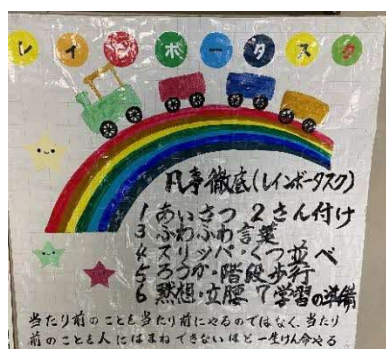 レインボータスク
凡事徹底(レインボータスク)
1 あいさつ 2 さん付け
3 ふわふわ言葉
4 スリッパ・くつ並べ
5 ろうか・階段歩行
6 黙想・立腰 7 学習の準備
当たり前のことを当たり前にやるのではなく、当たり
前のことを人にはまねできないほど一生けん命やる